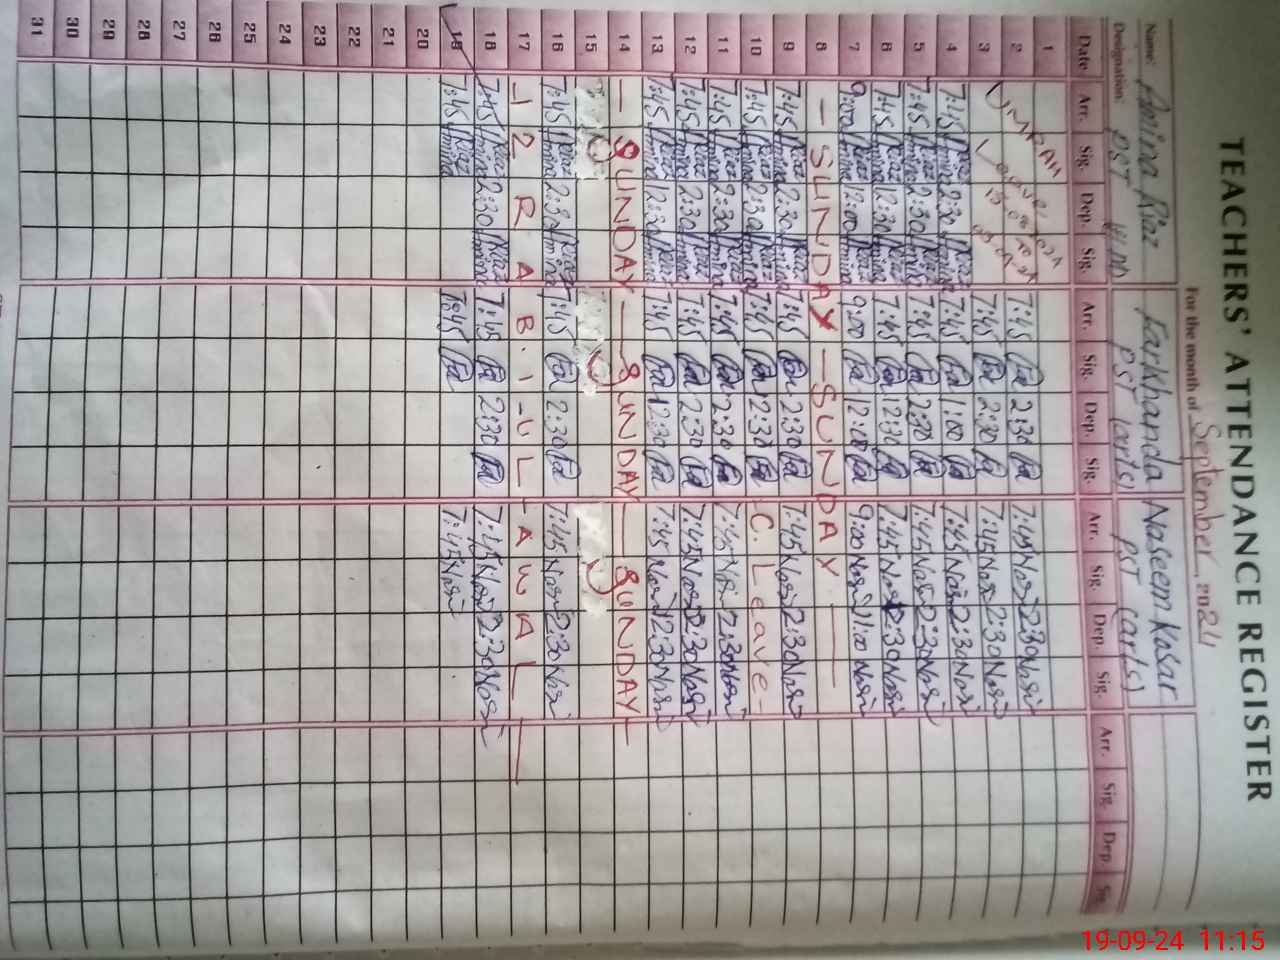 TEACHERS' ATTENDANCE REGISTER
For the month of September, 2024
Name: Amina Riaz Farkhanda Naseem Kosar
Designation: PST H/M PST (arts) PST (arts)
Date Arr. Sig. Dep. Sig. Arr. Sig. Dep. Sig. Arr. Sig. Dep. Sig. Arr. Sig. Dep. Sig.
1
2 UMRAH 7:45 2:30 7:45 Nasi 2:30 Nasi
3 Leave 7:45 2:30 7:45 Nasi 2:30 Nasi
4 7:45 Amina Riaz 2:30 Amina Riaz 7:45 1:00 7:45 Nasi 2:30 Nasi
5 7:45 Amina Riaz 2:30 Amina Riaz 7:45 2:30 7:45 Nasi 2:30 Nasi
6 7:45 Amina Riaz 12:30 Amina Riaz 7:45 12:30 7:45 Nasi 2:30 Nasi
7 9:00 Amina Riaz 12:00 Amina Riaz 9:00 12:00 9:00 Nasi 11:00 Nasi
8 — SUNDAY — SUNDAY —
9 7:45 Amina Riaz 2:30 Amina Riaz 7:45 2:30 7:45 Nasi 2:30 Nasi
10 7:45 Amina Riaz 2:30 Amina Riaz 7:45 2:30 - C. Leave -
11 7:45 Amina Riaz 2:30 Amina Riaz 7:45 2:30 7:45 Nasi 2:30 Nasi
12 7:45 Amina Riaz 2:30 Amina Riaz 7:45 2:30 7:45 Nasi 2:30 Nasi
13 7:45 Amina Riaz 12:30 Amina Riaz 7:45 12:30 7:45 Nasi 12:30 Nasi
14 — SUNDAY — SUNDAY — SUNDAY —
15
16 7:45 Amina Riaz 2:30 Amina Riaz 7:45 2:30 7:45 Nasi 2:30 Nasi
17 - 12 RABI-UL-AWAL —
18 7:45 Amina Riaz 2:30 Amina Riaz 7:45 2:30 7:45 Nasi 2:30 Nasi
19 7:45 Amina Riaz 7:45 7:45 Nasi
20
21
22
23
24
25
26
27
28
29
30
31
19-09-24 11:15